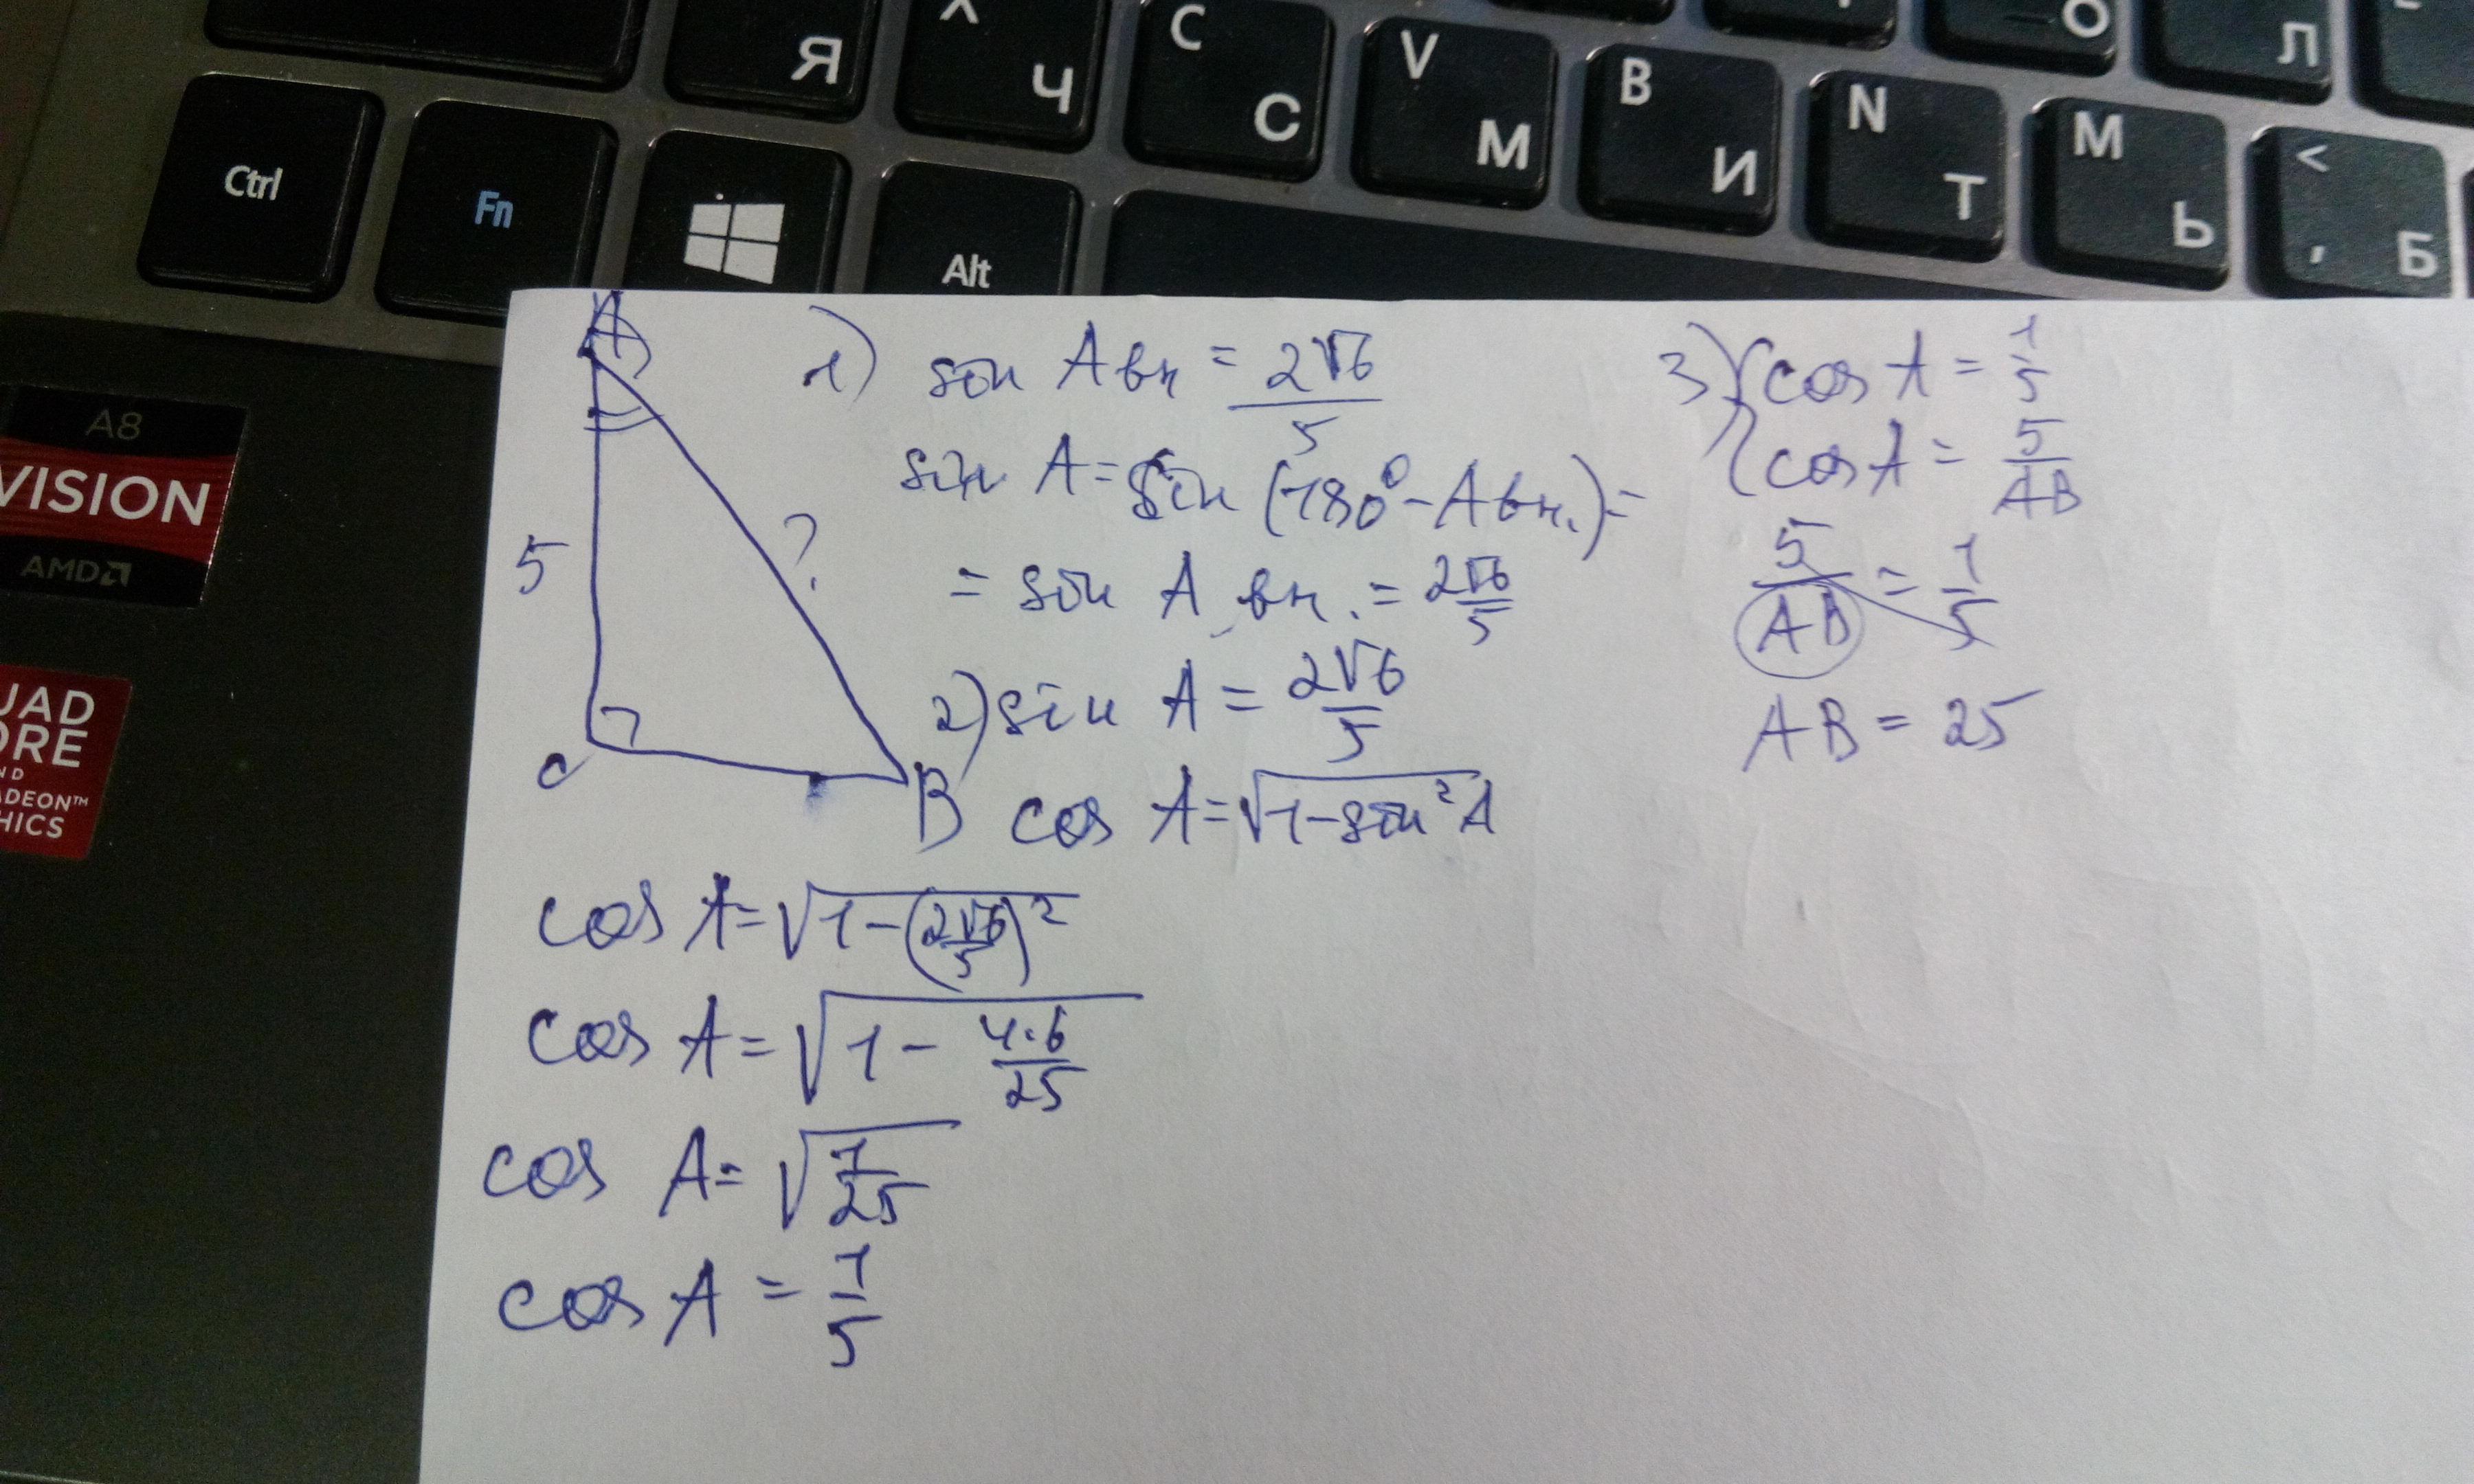 Я
Х
Ч
C
С
V
М
B
И
N
Т
M
Ь
О
Л
<
,
Б
Ctrl
Fn
Alt
A8
VISION
AMD
QUAD
CORE
AND
RADEON™
GRAPHICS
A
5
?
C
B
1) sin A вн = 2√6/5
sin A = sin (180° - A вн.) =
= sin A вн. = 2√6/5
2) sin A = 2√6/5
cos A = √(1 - sin² A)
cos A = √(1 - (2√6/5)²)
cos A = √(1 - 4·6/25)
cos A = √(1/25)
cos A = 1/5
3) { cos A = 1/5
cos A = 5/AB
5/AB = 1/5
AB = 25